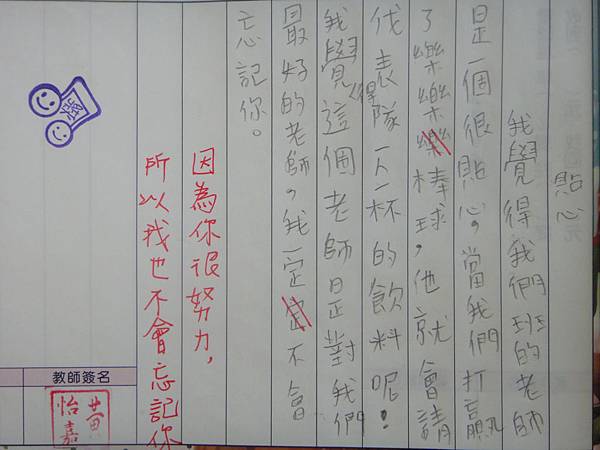 貼心
我覺得我們班的老師
是一個很貼心。當我們打贏
了樂樂樂棒球，他就會請
代表隊一人一杯的飲料呢！
我覺得這個老師是對我們
最好的老師，我一定定不會
忘記你。
因為你很努力，
所以我也不會忘記你
教師簽名
黃怡嘉